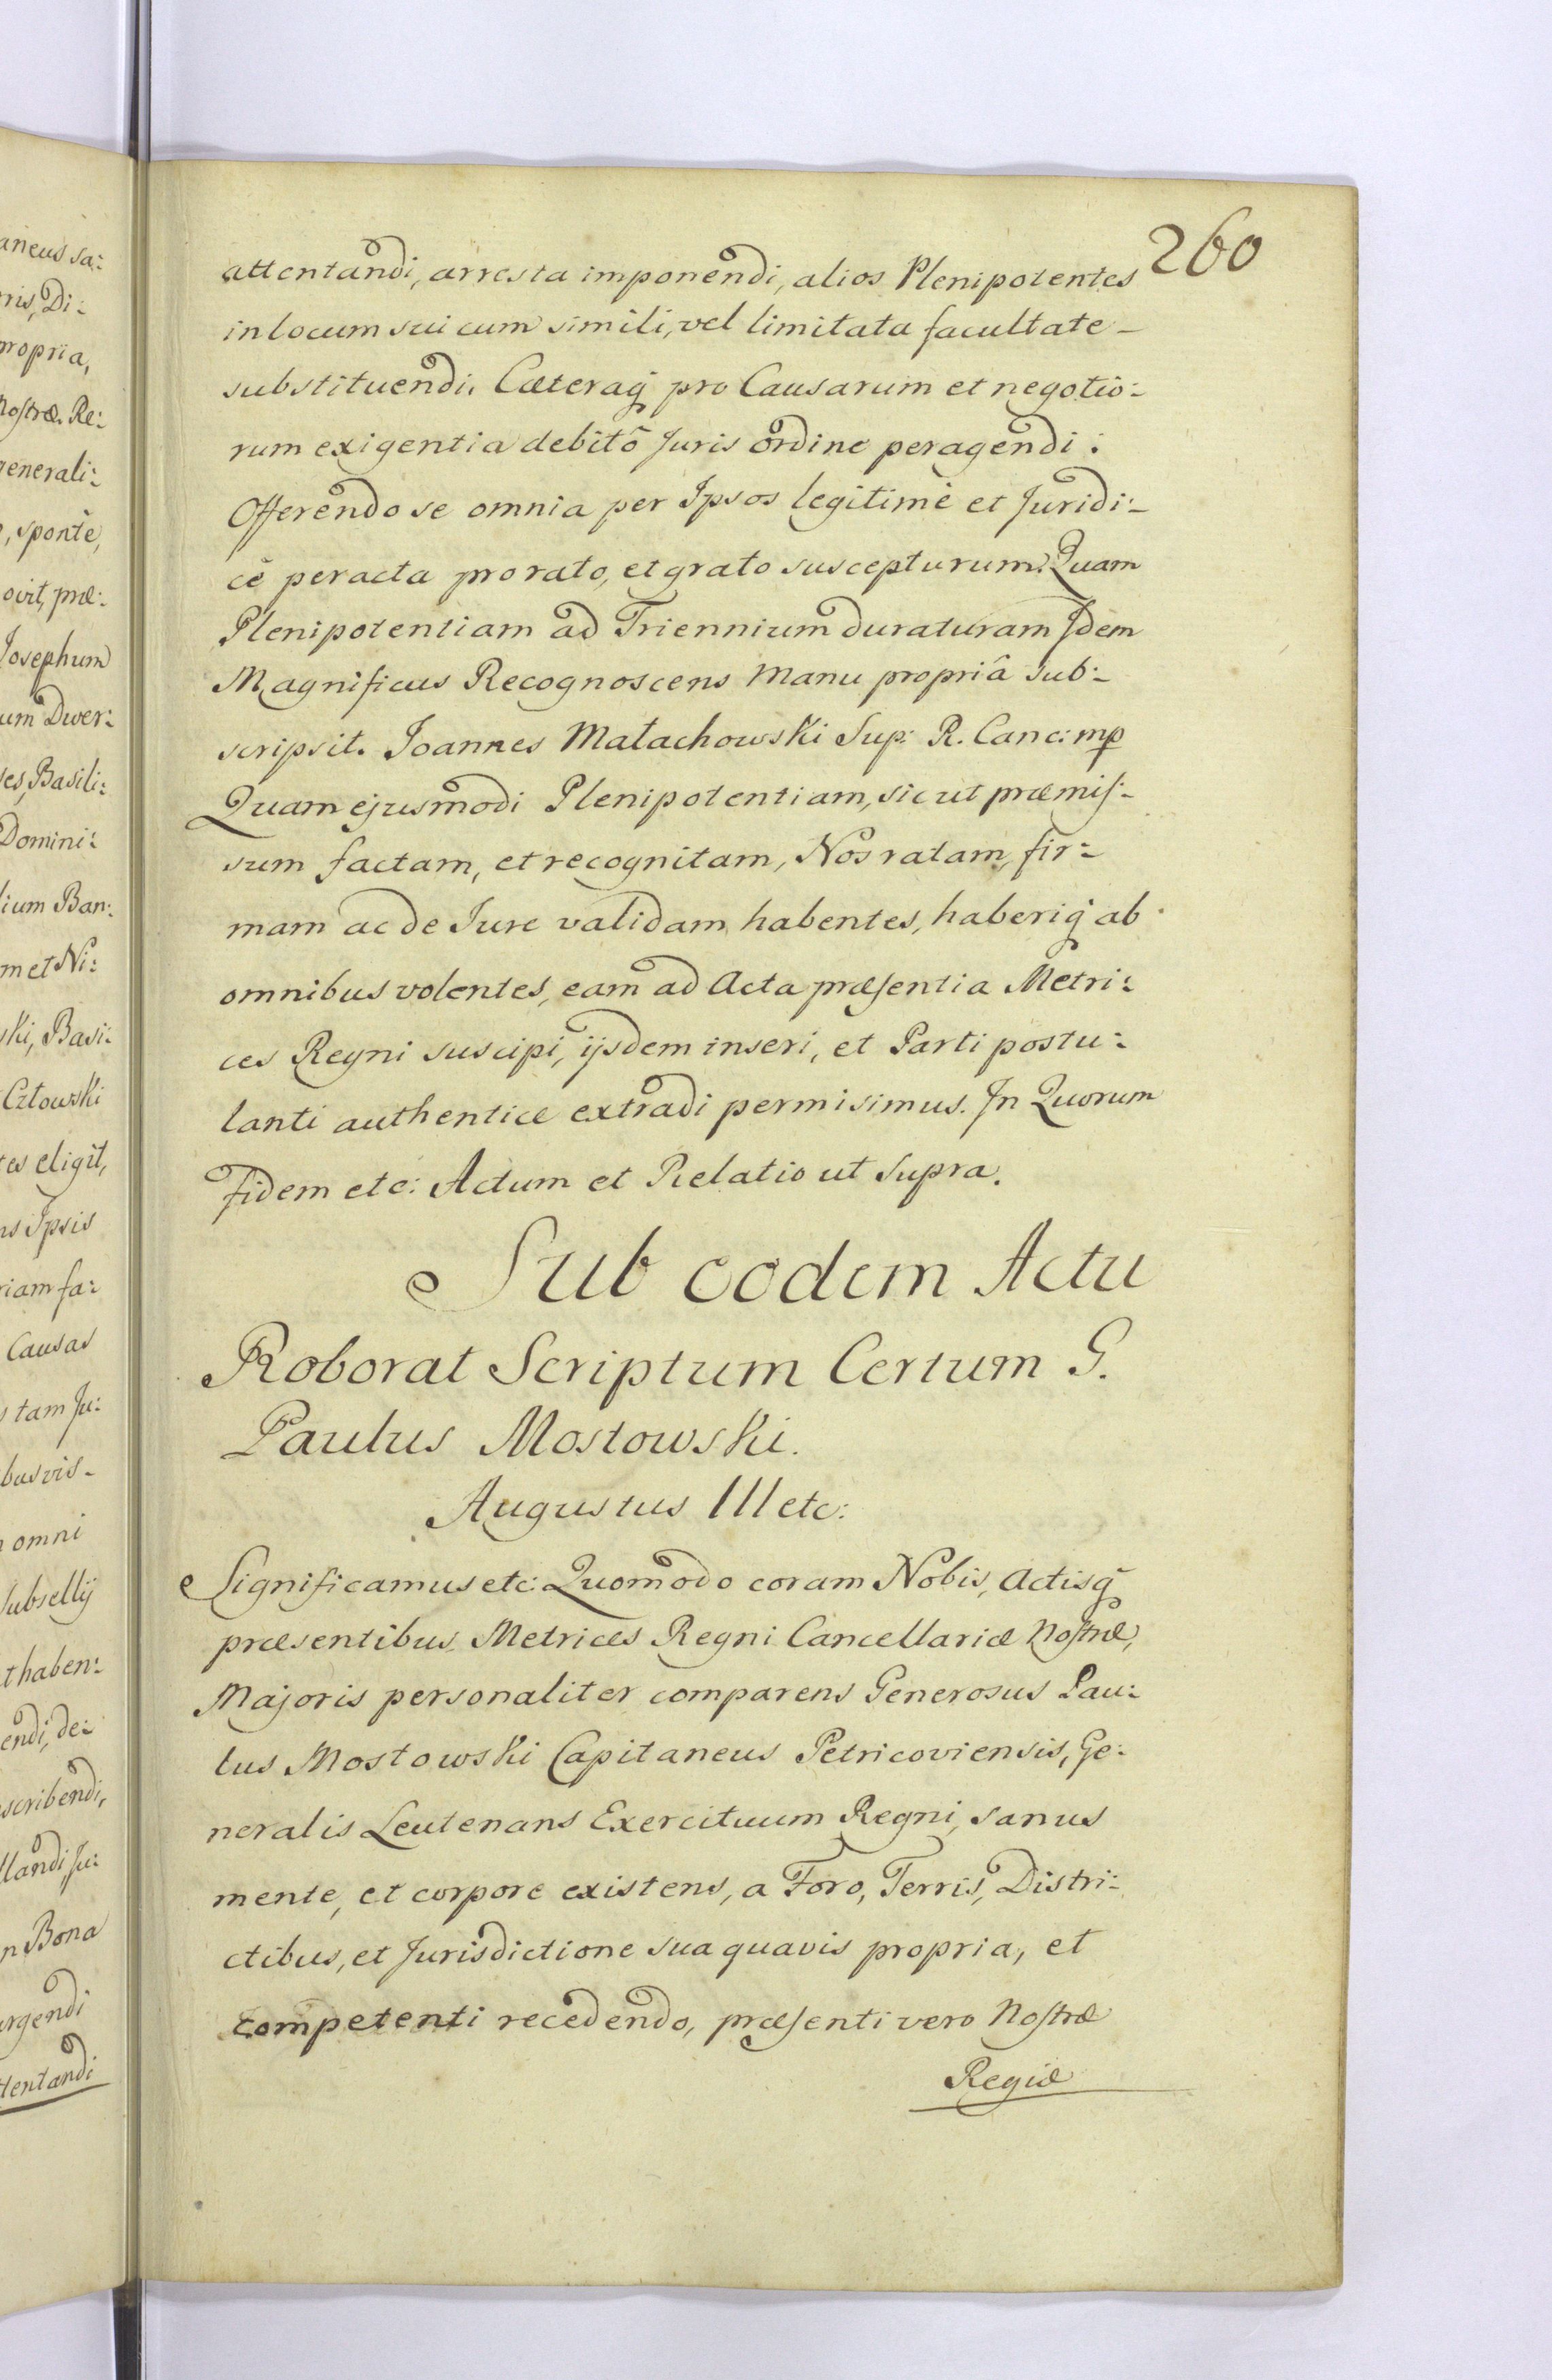 260
attentandi, arresta imponendi, alios Plenipotentes
in locum sui cum simili, vel limitata facultate
substituendi. Cæteraq́ pro Causarum et negotio:
rum exigentia debitô Juris ordine peragendi:
Offerendo se omnia per Ipsos legitimè et Juridi:
cè peracta pro rato, et grato suscepturum. Quam
Plenipotentiam ad Triennium duraturam Idem
Magnificus Recognoscens Manu propriâ sub:
scripsit. Joannes Małachowski Sup: R. Canc: mp
Quam ejusmodi Plenipotentiam, sicut præmis:
sum factam, et recognitam, Nos ratam, fir:
mam ac de Jure validam habentes, haberiq́ ab
omnibus volentes, eam ad Acta præsentia Metri:
ces Regni suscipi, ijsdem inseri, et Parti postu:
lanti authenticè extradi permisimus. In Quorum
fidem etc: Actum et Relatio ut supra.
Sub eodem Actu
Roborat Scriptum Certum G.
Paulus Mostowski.
Augustus III etc:
Significamus etc: Quomodo coram Nobis, Actisq́
præsentibus Metrices Regni Cancellariæ Nostræ,
Majoris personaliter comparens Generosus Pau:
lus Mostowski Capitaneus Petricoviensis, Ge:
neralis Leutenans Exercituum Regni, sanus
mente, et corpore existens, a Foro, Terris, Distri:
ctibus, et Jurisdictione sua quavis propria, et
competenti recedendo, præsenti vero Nostræ
Regiæ
aneus sa:
ris, Di:
propria,
Nostræ Re:
enerali:
, spontè,
ovit, præ:
Josephum
um Dwer:
es, Basili:
Domini:
lium Ban:
m et Ni:
ski, Basi:
Człowski
es eligit,
ns Ipsis
riam fa:
Causas
tam Ju:
busvis
omni
Subsellij
t haben:
endi, de:
scribendi,
llandi Ju:
n Bona
urgendi
ttentandi